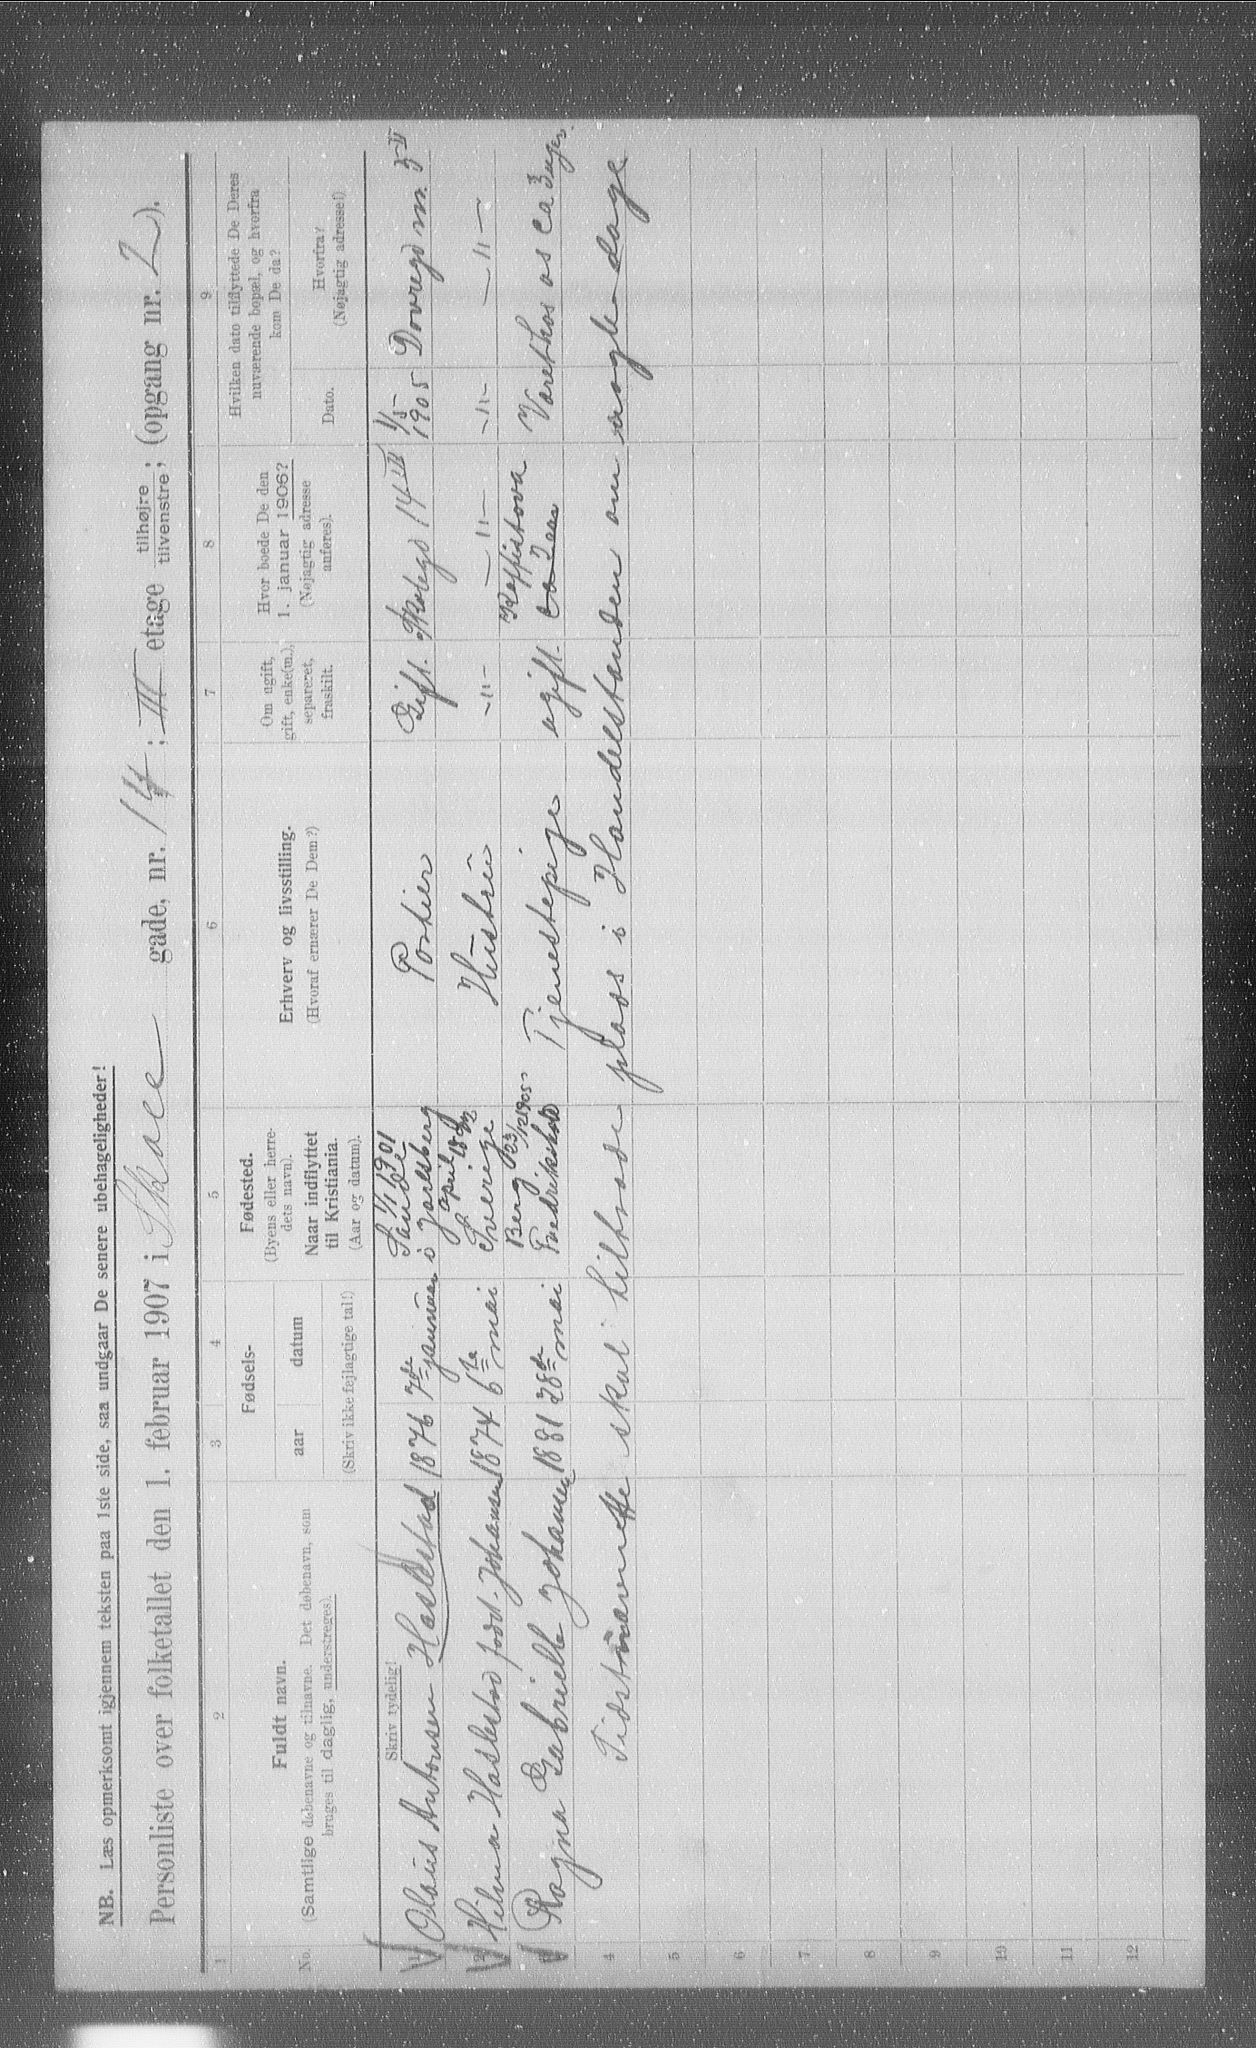 NB. Læs opmerksomt igjennem teksten paa 1ste side, saa undgaar De senere ubehageligheder!
Personliste over folketallet den 1. februar 1907 i Skaee gade, nr. 14; III etage tilhøjre tilvenstre; (opgang nr. 2).
1 2 3 4 5 6 7 8 9
No.
Fuldt navn.
(Samtlige døbenavne og tilnavne. Det døbenavn, som
bruges til daglig, understreges).
Fødsels-
aar datum
(Skriv ikke fejlagtige tal!)
Fødested.
(Byens eller herre-
dets navn).
Naar indflyttet
til Kristiania.
(Aar og datum).
Erhverv og livsstilling.
(Hvoraf ernærer De Dem?)
Om ugift,
gift, enke(m.),
separeret,
fraskilt.
Hvor boede De den
1. januar 1906?
(Nøjagtig adresse
anføres).
Hvilken dato tilflyttede De Deres
nuværende bopæl, og hvorfra
kom De da?
Dato.
Hvorfra?
(Nøjagtig adresse!)
Skriv tydelig!
1 Olaus Antonsen Haslestad 1876 7de januar Sande i Jarlsberg 1/1 1901 Portier Gift. 14 III 1/5 1905 Dovregd
2 Hilma Haslestad född. Johansen 1874 6te mai Sverige april Hustru -"- -"- -"- -"-
3 Ragna Gabrielle Johansen 1881 28de mai Berg Fredrikshald 23/12 1905 Tjenestepige ugift. Været hos os ca 3 uger.
4 skal tiltræde plads i Handelstanden om nogle dage
5
6
7
8
9
10
11
12